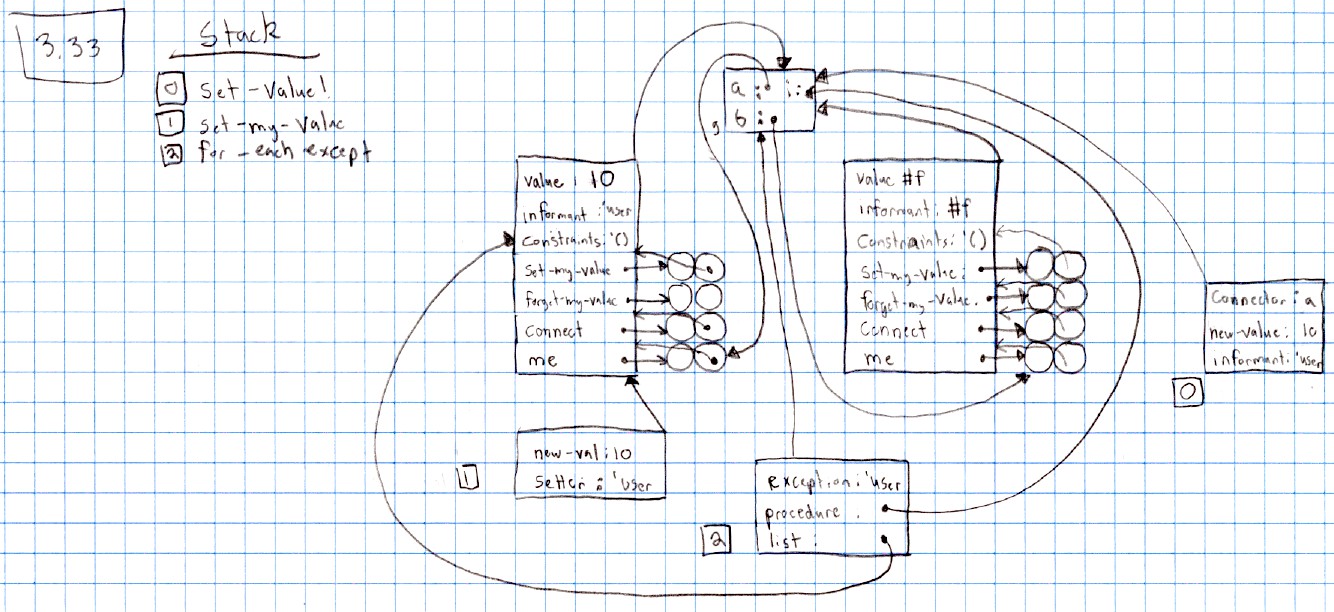 3.33
Stack
0 Set-Value!
1 set-my-Value
2 for-each except
a : i :
b :
g
Value : 10
informant : 'user
Constraints: '()
Set-my-value
forget-my-value
Connect
me
Value #f
informant: #f
Constraints: '()
Set-my-value:
forget-my-value.
Connect
me
Connector : a
new-value: 10
informant: 'user
0
new-val: 10
Setter : 'user
1
exception: 'user
procedure .
list :
2